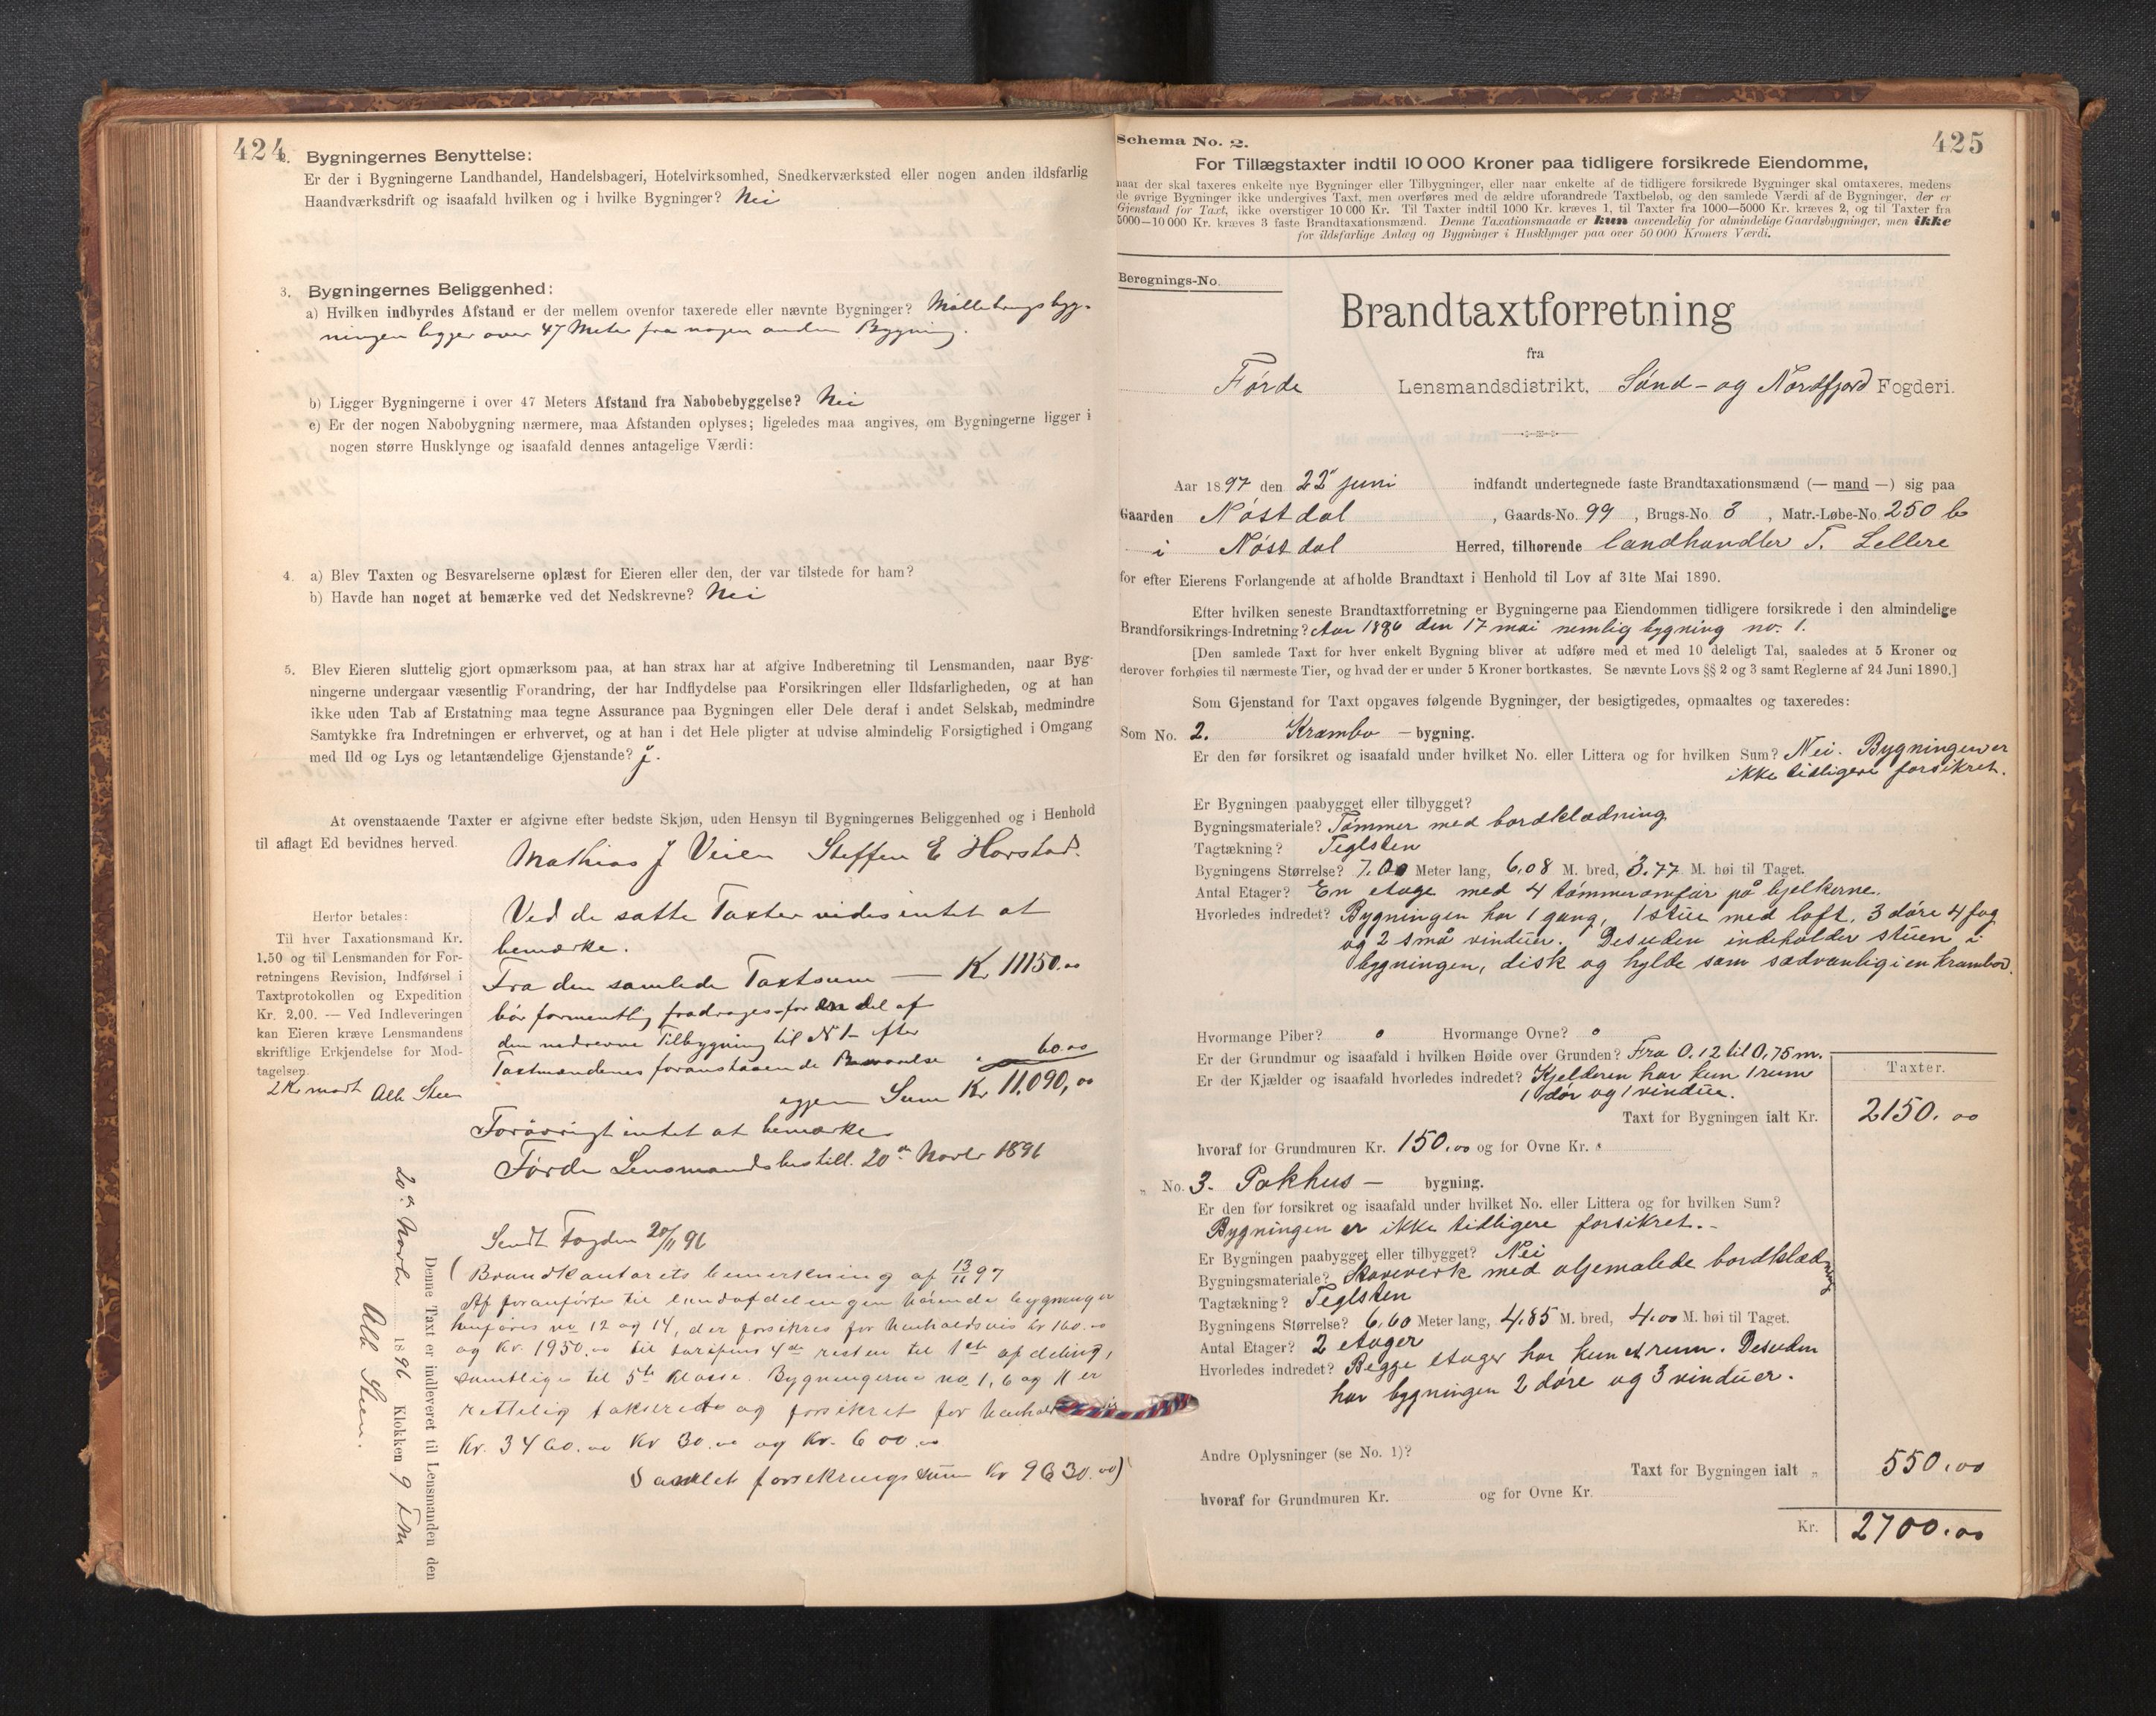 424
2. Bygningernes Benyttelse:
Er der i Bygningerne Landhandel, Handelsbageri, Hotelvirksomhed, Snedkerværksted eller nogen anden ildsfarlig
Haandværksdrift og isaafald hvilken og i hvilke Bygninger? Nei
3. Bygningernes Beliggenhed:
a) Hvilken indbyrdes Afstand er der mellem ovenfor taxerede eller nævnte Bygninger? Møllebrugsbyg-
ningen ligger over 47 Meter fra nogen anden Bygning.
b) Ligger Bygningerne i over 47 Meters Afstand fra Nabobebyggelse? Nei
c) Er der nogen Nabobygning nærmere, maa Afstanden oplyses; ligeledes maa angives, om Bygningerne ligger i
nogen større Husklynge og isaafald dennes antagelige Værdi:
4. a) Blev Taxten og Besvarelserne oplæst for Eieren eller den, der var tilstede for ham?
b) Havde han noget at bemærke ved det Nedskrevne? Nei
5. Blev Eieren sluttelig gjort opmærksom paa, at han strax har at afgive Indberetning til Lensmanden, naar Byg-
ningerne undergaar væsentlig Forandring, der har Indflydelse paa Forsikringen eller Ildsfarligheden, og at han
ikke uden Tab af Erstatning maa tegne Assurance paa Bygningen eller Dele deraf i andet Selskab, medmindre
Samtykke fra Indretningen er erhvervet, og at han i det Hele pligter at udvise almindelig Forsigtighed i Omgang
med Ild og Lys og letantændelige Gjenstande?
At ovenstaaende Taxter er afgivne efter bedste Skjøn, uden Hensyn til Bygningernes Beliggenhed og i Henhold
til aflagt Ed bevidnes herved.
Mathias J Veien Steffen E Horstad.
Ved de satte Taxter vides intet at
bemærke.
Fra den samlede Taxtsum — Kr 11150.00
bør formentlig fradrages for en del af
den nedrevne Tilbygning til No 1 efter
Taxtmændenes foranstaaende Besvarelse " 60.00
igjen Sum Kr 11,090,00
Forøvrigt intet at bemærke
Førde Lensmandsbestill. 20de Novbr 1896
Herfor betales:
Til hver Taxationsmand Kr.
1.50 og til Lensmanden for For-
retningens Revision, Indførsel i
Taxtprotokollen og Expedition
Kr. 2.00. — Ved Indleveringen
kan Eieren kræve Lensmandens
skriftlige Erkjendelse for Mod-
tagelsen.
2 Kr modt Alb Steen
Denne Taxt er indleveret til Lensmanden den
20de Novbr 1896 Klokken 9 Em
Alb Steen.
Sendt Fogden 20/11 96
(Brandkontorets bemerkning af 13/11 97
Af foranførte til landafdelingen hørende bygninger
henføres no 12 og 14, der forsikres for henholdsvis kr 160.00
og kr. 1950.00 til tarifens 4de resten til 1ste afdeling,
samtlige til 5te Klasse. Bygningerne no 1, 6 og 11 er
rettelig takseret og forsikret for henholds
Kr. 3460.00 Kr 30.00 og Kr. 600.00
Samlet forsikringssum kr 9630.00)
425
Schema No. 2.
For Tillægstaxter indtil 10 000 Kroner paa tidligere forsikrede Eiendomme,
naar der skal taxeres enkelte nye Bygninger eller Tilbygninger, eller naar enkelte af de tidligere forsikrede Bygninger skal omtaxeres, medens
de øvrige Bygninger ikke undergives Taxt, men overføres med de ældre uforandrede Taxtbeløb, og den samlede Værdi af de Bygninger, der er
Gjenstand for Taxt, ikke overstiger 10 000 Kr. Til Taxter indtil 1000 Kr. kræves 1, til Taxter fra 1000—5000 Kr. kræves 2, og til Taxter fra
5000—10 000 Kr. kræves 3 faste Brandtaxationsmænd. Denne Taxationsmaade er kun anvendelig for almindelige Gaardsbygninger, men ikke
for ildsfarlige Anlæg og Bygninger i Husklynger paa over 50 000 Kroners Værdi.
Beregnings-No.
Brandtaxtforretning
fra
Førde Lensmandsdistrikt, Sønd- og Nordfjord Fogderi.
Aar 1897 den 22 juni indfandt undertegnede faste Brandtaxationsmænd (— mand —) sig paa
Gaarden Nøstdal, Gaards-No. 99, Brugs-No 3, Matr.-Løbe-No. 250 b
i Nøstdal Herred, tilhørende landhandler T. Lellere
for efter Eierens Forlangende at afholde Brandtaxt i Henhold til Lov af 31te Mai 1890.
Efter hvilken seneste Brandtaxtforretning er Bygningerne paa Eiendommen tidligere forsikrede i den almindelige
Brandforsikrings-Indretning? Aar 1886 den 17 mai nemlig bygning no. 1.
[Den samlede Taxt for hver enkelt Bygning bliver at udføre med et med 10 deleligt Tal, saaledes at 5 Kroner og
derover forhøies til nærmeste Tier, og hvad der er under 5 Kroner bortkastes. Se nævnte Lovs §§ 2 og 3 samt Reglerne af 24 Juni 1890.]
Som Gjenstand for Taxt opgaves følgende Bygninger, der besigtigedes, opmaaltes og taxeredes:
Som No. 2. Krambo —bygning.
Er den før forsikret og isaafald under hvilket No. eller Littera og for hvilken Sum? Nei. Bygningen er
ikke tidligere forsikret.
Er Bygningen paabygget eller tilbygget?
Bygningsmateriale? Tømmer med bordklædning
Tagtækning? Teglsten
Bygningens Størrelse? 7.00 Meter lang, 6,08 M. bred, 3.77 M. høi til Taget.
Antal Etager? En etage med 4 tømmeromfar på bjelkerne.
Hvorledes indredet? Bygningen har 1 gang, 1 stue med loft, 3 døre 4 fag
og 2 små vinduer. Desuden indeholder stuen i
bygningen, disk og hylde som sædvanlig i en krambod.
Hvormange Piber? o Hvormange Ovne? o
Er der Grundmur og isaafald i hvilken Høide over Grunden? Fra 0.12 til 0,75 m.
Er der Kjælder og isaafald hvorledes indredet? Kjelderen har kun 1 rum
1 dør og 1 vindue.
Taxter.
Taxt for Bygningen ialt Kr. 2150.00
hvoraf for Grundmuren Kr. 150.00 og for Ovne Kr.
" No. 3. Pakhus — bygning.
Er den før forsikret og isaafald under hvilket No. eller Littera og for hvilken Sum?
Bygningen er ikke tidligere forsikret.-
Er Bygningen paabygget eller tilbygget? Nei
Bygningsmateriale? Staververk med oljemalede bordklædning
Tagtækning? Teglsten
Bygningens Størrelse? 6,60 Meter lang, 4,85 M. bred, 4.00 M. høi til Taget.
Antal Etager? 2 etager
Hvorledes indredet? Begge etager har kun et rum. Desuden
har bygningen 2 døre og 3 vinduer.
Andre Oplysninger (se No. 1)?
Taxt for Bygningen ialt " 550.00
hvoraf for Grundmuren Kr. og for Ovne Kr.
Kr. 2700.00